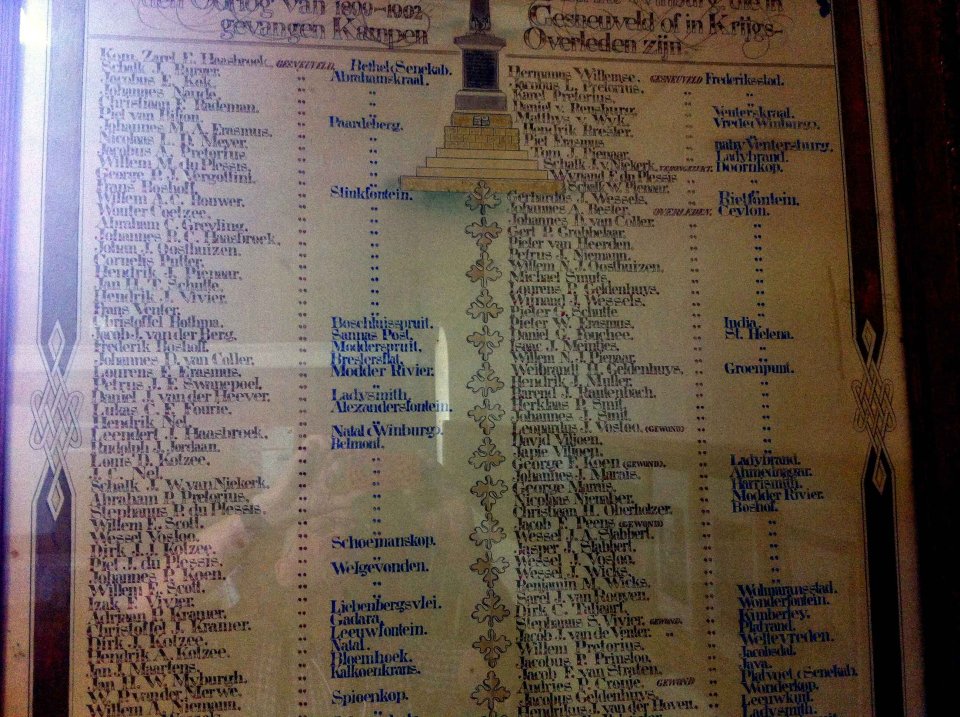 den Oorlog van 1899-1902
gevangen Kampen
Gesneuveld of in Krijgs-
Overleden zijn
Kom. Zarel F. Haasbroek GESNEUVELD Bethek Senekab.
Schalk J. Burger. " Abrahamskraal.
Jacobus F. Kok. "
Johannes Naude. "
Christiaan F. Bademan. "
Piet van Biljon. " Paardeberg.
Johannes M. A. Erasmus. "
Nicolaas L. H. Meyer. "
Jacobus J. Pretorius "
Willem M. du Plessis. "
George P. J. Vergottini. "
Frans Boshoff. " Slinkfontein.
Willem A. C. Bouwer. "
Wouter Coetzee. "
Abraham C. Greyling. "
Johannes H. C. Haasbroek. "
Johan J. Oosthuizen. "
Cornelis Putter. "
Hendrik J. Pienaar. "
Jan H. T. Schutte. "
Hendrik J. Vivier. "
Hans Venter. "
Christoffel Bothma. " Boschluisspruit.
Jacob J. van der Berg. " Sannas Post.
Frederik Boshoff. " Modderspruit.
Johannes D. van Coller. " Breslersflat.
Lourens F. Erasmus. " Modder Rivier.
Petrus J. E. Swanepoel. "
Daniel J. van der Heever. " Ladysmith.
Lukas C. F. Fourie. " Alexandersfontein.
Hendrik Nel. "
Leendert J. Haasbroek. " Natal c Winburgo.
Rudolph J. Jordaan. " Belmont.
Louis D. Kotzee. "
Lou. Nel. "
Schalk J. W. van Niekerk. "
Abraham P. Pretorius. "
Stephanus P. du Plessis. "
Willem E. Scott. "
Wessel Vosloo. "
Dirk J. J. Kotzee. " Schoemanskop.
Piet J. du Plessis. "
Johannes C. Koen. " Welgevonden.
Willem E. Scott. "
Izak F. Vivier. "
Adriaan P. Kramer. " Liebenbergsvlei.
Christoffel J. Kramer. " Gadara.
Dirk J. Kotzee. " Leeuwfontein.
Hendrik A. Kotzee. " Natal.
Jan Maartens. " Bloemhoek.
Jan H. W. Myburgh. " Kalkoenkrans.
W. D. van der Merwe. "
Willem A. Niemann. " Spioenkop.
Hermanus Willemse. GESNEUVELD Frederiksstad.
Jacobus L. Pretorius. "
Karel Pretorius. "
Daniel v. Rensburg. " Venterskraal.
Matthys v. Wyk. " Vrede c Winburgo.
Hendrik Bresler. "
Piet Erasmus. " naby Ventersburg.
Tom J. Pienaar. " Ladybrand.
Schalk J. v. Niekerk. VERONGELUKT. Doornkop.
Wynand F. du Plessis "
Schalk W. Pienaar. "
Gerhardus J. Wessels. " Rietfontein.
Johannes A. Bester. OVERLEDEN. Ceylon.
Johannes D. van Coller. "
Gert P. Grobbelaar. "
Pieter van Heerden. "
Petrus J. Niemann. "
Willem N. J. Oosthuizen. "
Michael Smuts. "
Lourens P. Geldenhuys. "
Wijnand J. Wessels. "
Pieter G. Schutte. "
Pieter W. Erasmus. " India.
Daniel G. Fouchee. " St. Helena.
Isaac J. Meintjes. "
Willem N. J. Pienaar. "
Weibrandt H. Geldenhuys. " Groenpunt.
Hendrik J. Muller. "
Barend J. Rautenbach. "
Herklaas P. Smit. "
Johannes J. Smit. "
Leopardus J. Vosloo. (GEWOND) "
David Viljoen. "
Japie Viljoen. "
George F. Koen (GEWOND). " Ladybrand.
Johannes J. Marais. " Ahmednagar.
George Marais. " Harrismith.
Nicolaas Nienaber. " Modder Rivier.
Christiaan H. Oberholzer. " Boshof.
Jacob F. Peens (GEWOND) "
Wessel J. A. Slabbert. "
Jasper J. Slabbert. "
Wessel J. Vosloo. "
Wessel J. Wicks. "
Benjamin M. Wicks. "
Sarel J. van Rooyen. " Wolmaransstad.
Dirk C. Taljaart. " Wonderfontein.
Stephanus S. Vivier. GEWOND. Kimberley.
Jacob J. van de Venter. " Platrand.
Willem Pretorius. " Welte vreden.
Jacobus P. Prinsloo. " Jacobsdal.
Jacob F. van Straten. " Java.
Andries T. Cronje. GEWOND Platvoet c Senekab.
Jacobus Geldenhuys. " Wonderkop.
Hendrikus J. van der Hoven. " Leeuwkuil.
Ladysmith.